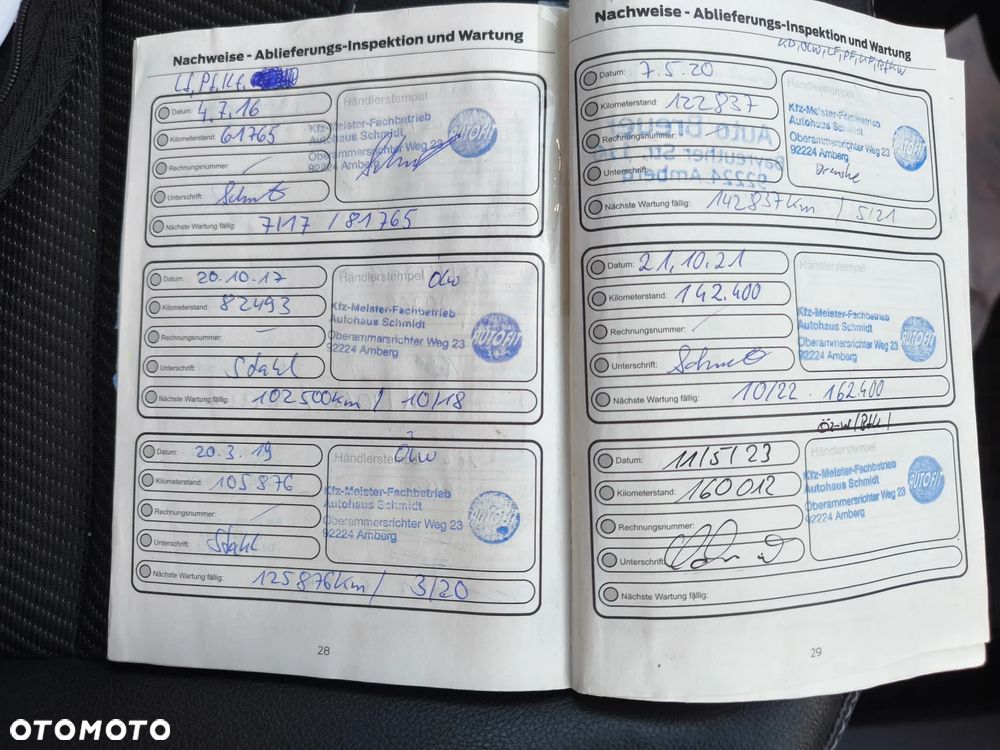 Nachweise - Ablieferungs-Inspektion und Wartung
Lf, Pf, Kf,
Datum: 4.7.16
Händlerstempel
Kilometerstand: 61765
Kfz-Meister-Fachbetrieb
Autohaus Schmidt
Oberammersrichter Weg 23
92224 Amberg
AUTOFIT
Rechnungsnummer: -
Unterschrift:
Nächste Wartung fällig: 7/17 / 81765
Datum: 20.10.17
Händlerstempel Ölw
Kilometerstand: 82493
Kfz-Meister-Fachbetrieb
Autohaus Schmidt
Oberammersrichter Weg 23
92224 Amberg
AUTOFIT
Rechnungsnummer: -
Unterschrift: Stahl
Nächste Wartung fällig: 102500km / 10/18
Datum: 20.3.19
Händlerstempel Ölw
Kilometerstand: 105876
Kfz-Meister-Fachbetrieb
Autohaus Schmidt
Oberammersrichter Weg 23
92224 Amberg
Rechnungsnummer: -
Unterschrift: Stahl
Nächste Wartung fällig: 125876km / 3/20
28
Nachweise - Ablieferungs-Inspektion und Wartung
Datum: 7.5.20
Händlerstempel
Kilometerstand: 122837
Kfz-Meister-Fachbetrieb
Autohaus Schmidt
Oberammersrichter Weg 23
92224 Amberg
AUTOFIT
Rechnungsnummer: -
Auto Breuer
Bayreuther Str.
92224 Amberg
Unterschrift:
Nächste Wartung fällig: 142837km / 5/21
Datum: 21.10.21
Händlerstempel
Kilometerstand: 142.400
Kfz-Meister-Fachbetrieb
Autohaus Schmidt
Oberammersrichter Weg 23
92224 Amberg
AUTOFIT
Rechnungsnummer:
Unterschrift:
Nächste Wartung fällig: 10/22 . 162.400
Datum: 11/5/23
Händlerstempel
Kilometerstand: 160012
Kfz-Meister-Fachbetrieb
Autohaus Schmidt
Oberammersrichter Weg 23
92224 Amberg
AUTOFIT
Rechnungsnummer:
Unterschrift:
Nächste Wartung fällig:
29
OTOMOTO